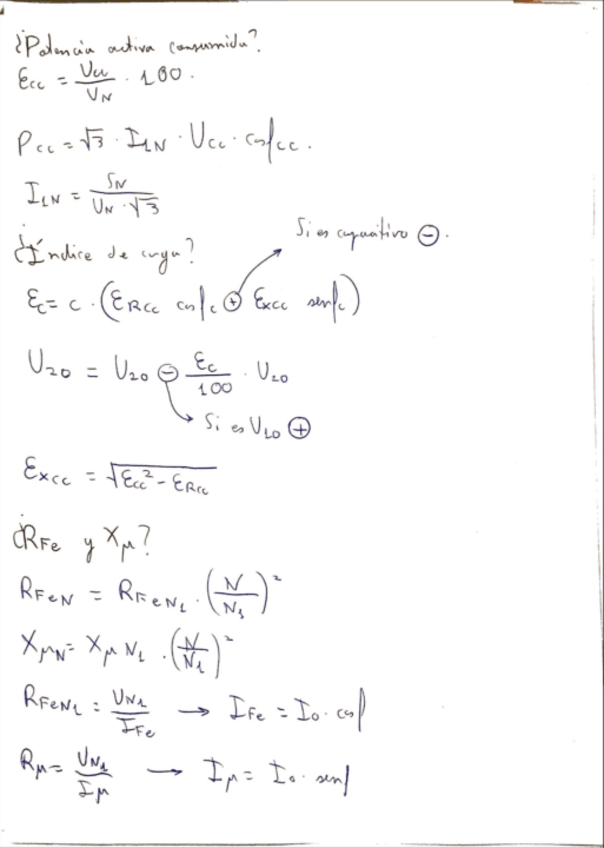 ¿Potencia activa consumida?
Ecc = Ucc / UN · 100.
Pcc = √3 · I1N · Ucc · cosφcc.
I1N = SN / UN · √3
Si es capacitivo ⊖.
¿Índice de carga?
Ec = c · (ERcc cosφc ⊕ Excc senφc)
U20 = U20 ⊖ Ec / 100 · U20
Si es U10 ⊕
Excc = √Ecc² - ERcc
¿RFe y Xμ?
RFeN = RFeN1 · (N / N1)²
XμN = Xμ N1 · (N / N1)²
RFeN1 = UN1 / IFe → IFe = I0 · cosφ
Rμ = UN1 / Iμ → Iμ = I0 · senφ